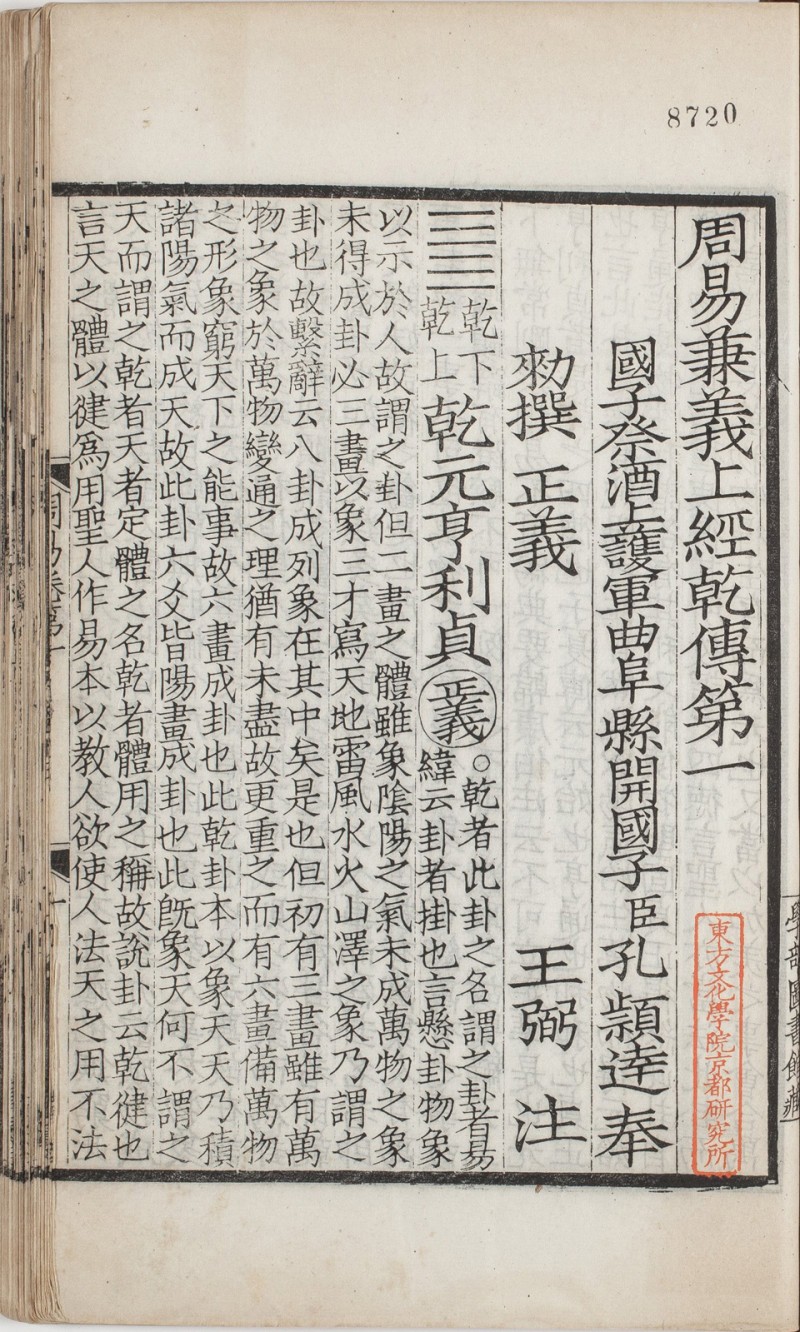 8720
周易兼義上經乾傳第一
國子祭酒上護軍曲阜縣開國子臣孔穎達奉
勑撰 正義 王弼 注
乾下
乾上
乾元亨利貞
正義
○乾者此卦之名謂之卦者易
緯云卦者掛也言懸卦物象
以示於人故謂之卦但二畫之體雖象陰陽之氣未成萬物之象
未得成卦必三畫以象三才寫天地雷風水火山澤之象乃謂之
卦也故繫辭云八卦成列象在其中矣是也但初有三畫雖有萬
物之象於萬物變通之理猶有未盡故更重之而有六畫備萬物
之形象窮天下之能事故六畫成卦也此乾卦本以象天天乃積
諸陽氣而成天故此卦六爻皆陽畫成卦也此旣象天何不謂之
天而謂之乾者天者定體之名乾者體用之稱故說卦云乾健也
言天之體以健爲用聖人作易本以教人欲使人法天之用不法
東方文化學院京都研究所
學部圖書館藏